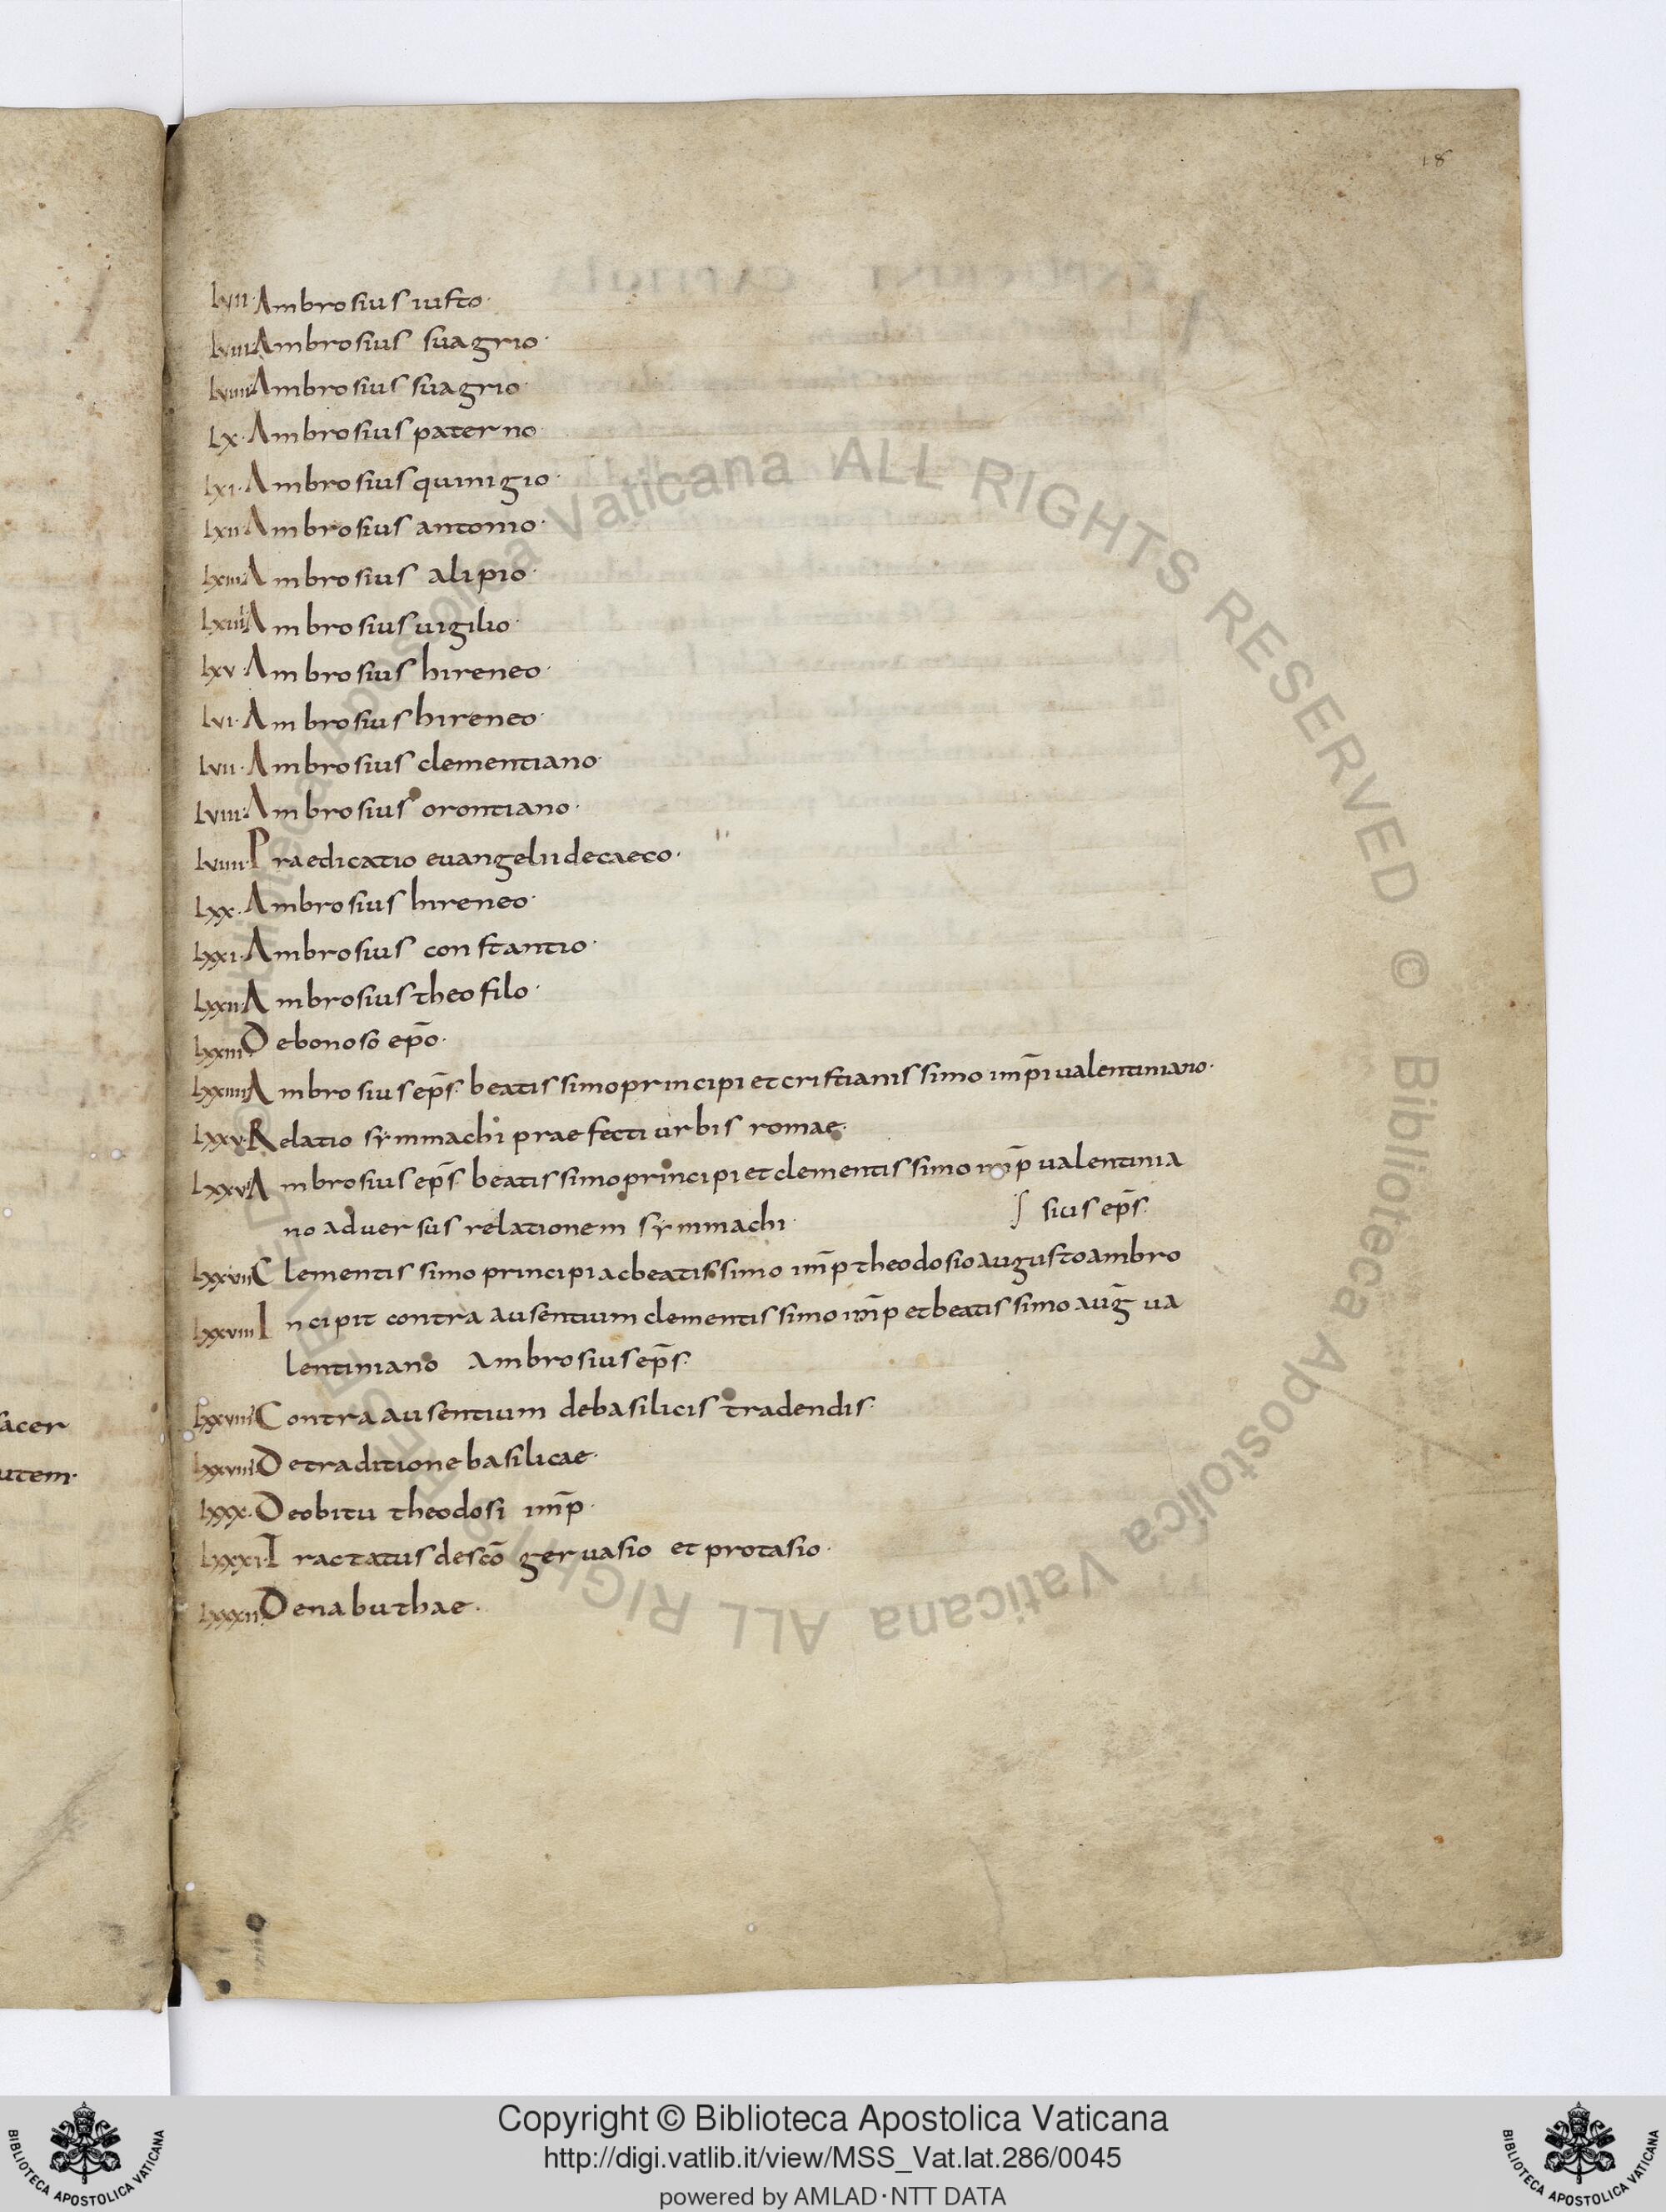 18
lvii. Ambrosius iusto.
lviii Ambrosius suagrio.
lviiii Ambrosius suagrio.
lx. Ambrosius paterno
lxi. Ambrosius quinigio.
lxii Ambrosius antonio.
lxiii Ambrosius alipio.
lxiiii Ambrosius uigilio.
lxv. Ambrosius hireneo.
lvi. Ambrosius hireneo.
lvii. Ambrosius clementiano.
lviii. Ambrosius orontiano.
lviiii. Praedicatio euangelii de caeco.
lxx. Ambrosius hireneo.
lxxi. Ambrosius constantio.
lxxii. Ambrosius theofilo.
lxxiii De bonoso ep̄o.
lxxiiii Ambrosius ep̄s. beatissimo principi et cristianissimo imp̄i ualentiniano.
lxxv. Relatio symmachi praefecti urbis romae.
lxxvi Ambrosius ep̄s. beatissimo principi et clementissimo imp̄ ualentinia
no aduersus relationem symmachi.
sius ep̄s.
lxxvii Clementissimo principi ac beatissimo imp̄ theodosio augusto ambro
lxxviii Incipit contra ausentium clementissimo imp̄ et beatissimo auḡ ua
lentiniano Ambrosius ep̄s.
lxxviiii Contra ausentium de basilicis tradendis.
lxxviiii De traditione basilicae.
lxxx. De obitu theodosi imp̄.
lxxxi. Tractatus de sc̄o geruasio et protasio.
lxxxii De nabuthae.
sacer
utem.
Biblioteca Apostolica Vaticana ALL RIGHTS RESERVED ©
Biblioteca Apostolica Vaticana ALL RIGHTS RESERVED ©
Copyright © Biblioteca Apostolica Vaticana
http://digi.vatlib.it/view/MSS_Vat.lat.286/0045
powered by AMLAD·NTT DATA
BIBLIOTECA APOSTOLICA VATICANA
BIBLIOTECA APOSTOLICA VATICANA